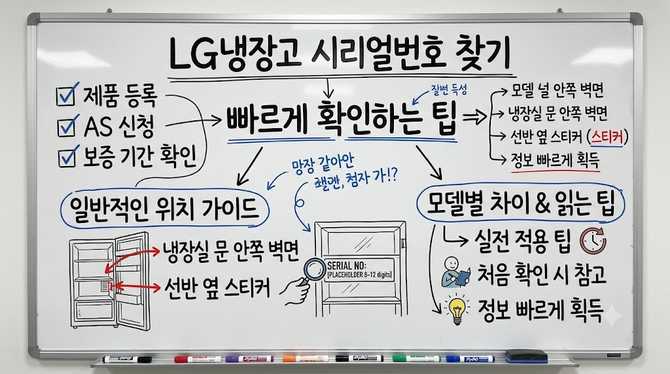 LG냉장고 시리얼번호 찾기
제품 등록
AS 신청
보증 기간 확인
빠르게 확인하는 팁
질변 득성
모델 널 안쪽 벽면
냉장실 문 안쪽 벽면
선반 옆 스티커 (스티커)
정보 빠르게 획득
일반적인 위치 가이드
냉장실 문 안쪽 벽면
선반 옆 스티커
망장 같아안
첨자 가!?
SERIAL NO:
모델별 차이 & 읽는 팁
실전 적용 팁
처음 확인 시 참고
정보 빠르게 획득